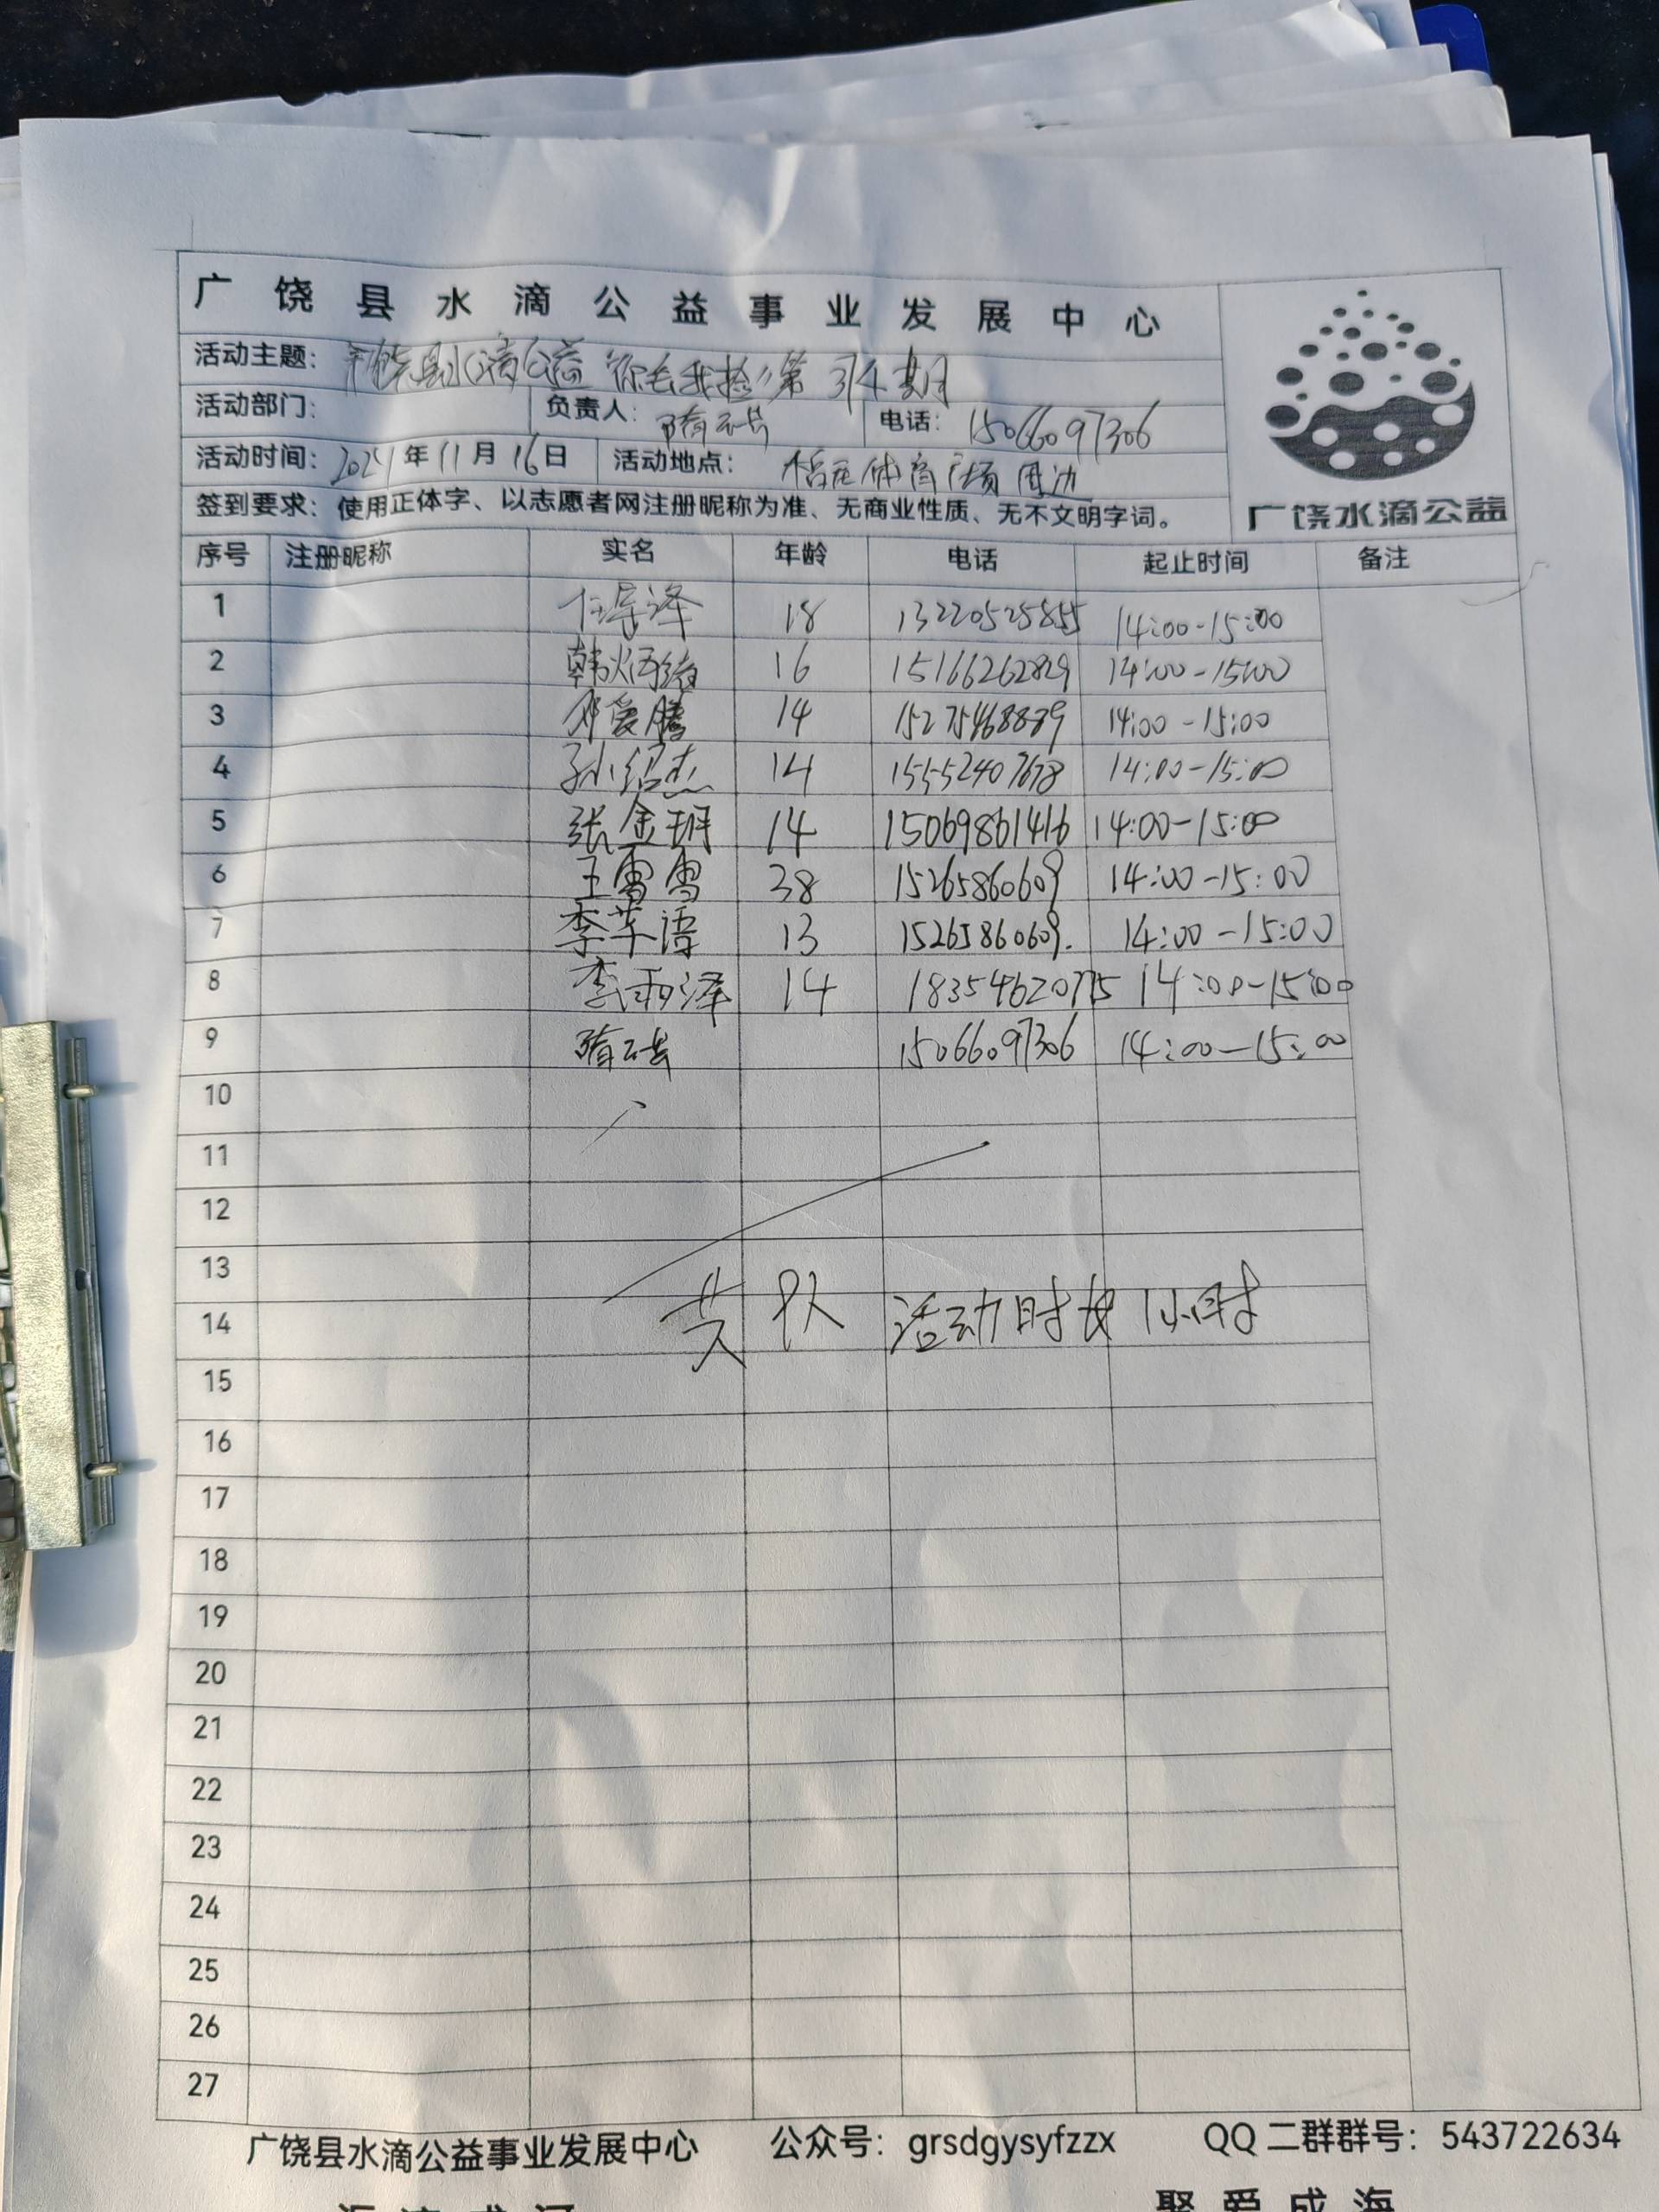 广饶县水滴公益事业发展中心
活动主题：广饶县水滴公益 你丢我捡 第314期
活动部门： 负责人：隋 电话：15066097306
活动时间：202 年11月16日 活动地点：体育广场周边
签到要求：使用正体字、以志愿者网注册昵称为准、无商业性质、无不文明字词。
广饶水滴公益
序号 注册昵称 实名 年龄 电话 起止时间 备注
1 任 泽 18 13220525855 14:00-15:00
2 韩炳 16 15166262829 14:00-15:00
3 邓爱腾 14 14:00-15:00
4 孙绍杰 14 15552407678 14:00-15:00
5 张金珊 14 15069861416 14:00-15:00
6 王雪雪 38 15265860609 14:00-15:00
7 李芊语 13 15265860609. 14:00-15:00
8 李雨泽 14 18354620775 14:00-15:00
9 隋 15066097306 14:00-15:00
10
11
12
13
14 队 活动时长1小时
15
16
17
18
19
20
21
22
23
24
25
26
27
广饶县水滴公益事业发展中心 公众号：grsdgysyfzzx QQ二群群号：543722634
聚爱成海